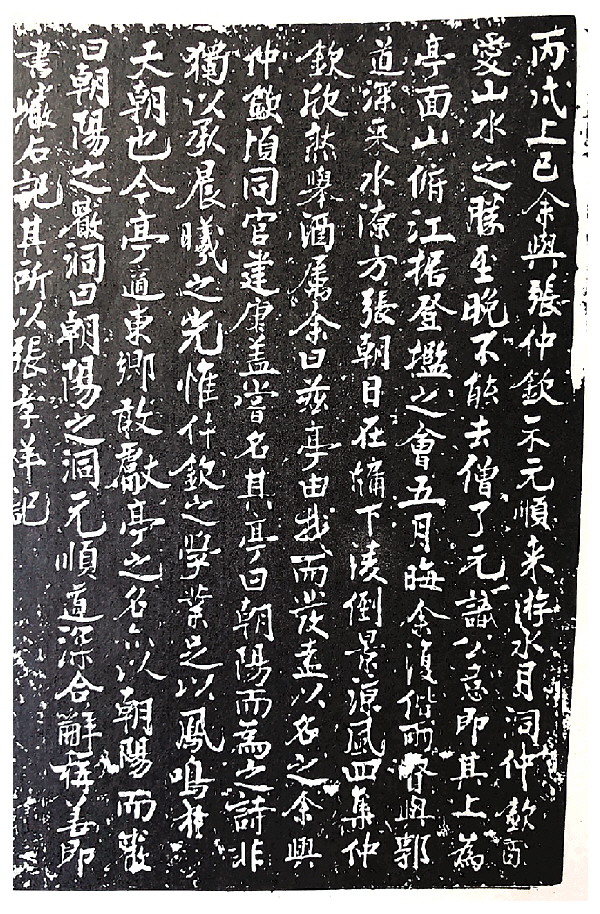 丙戌上巳余與張仲欽朱元順来游水月洞仲欽酷
愛山水之勝至晚不能去僧了元識公意即其上為
亭面山俯江據登攬之會五月晦余復偕兩賢與郭
道深来水潦方張朝日在牖下凌倒景涼風四集仲
欽欣然舉酒屬余曰茲亭由我而發盍以名之余與
仲欽頃同官建康蓋嘗名其亭曰朝陽而為之詩非
獨以承晨曦之光惟仲欽之學業足以鳳鳴於
天朝也今亭適東鄉敢獻亭之名亦以朝陽而巖
曰朝陽之巖洞曰朝陽之洞元順道深合辭稱善即
書巖石記其所以張孝祥記